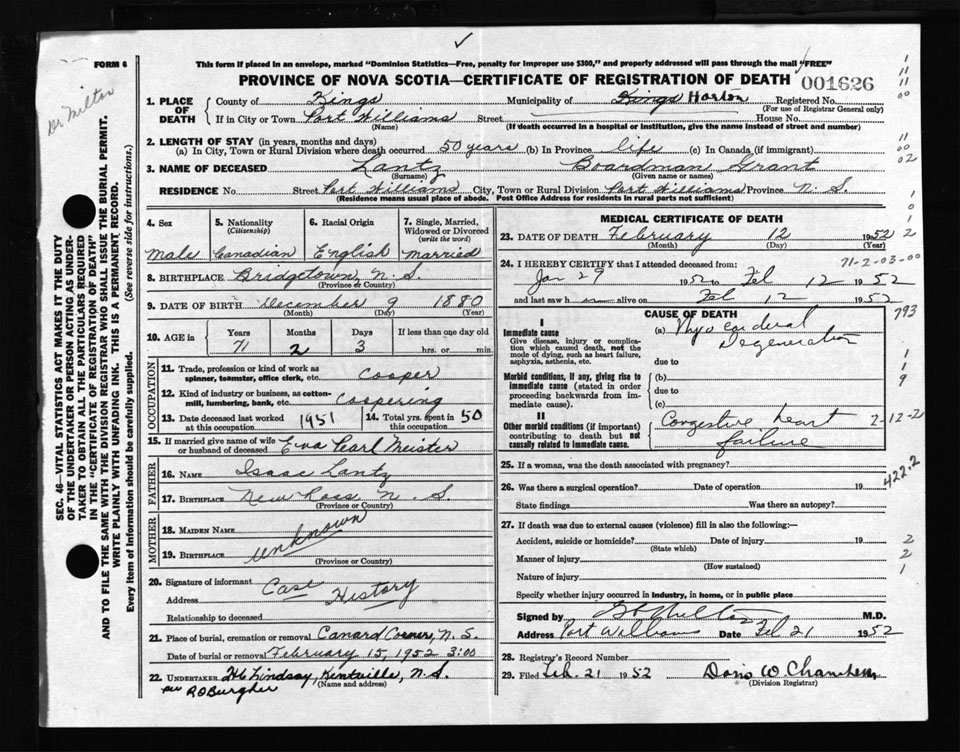 FORM 6
This form if placed in an envelope, marked "Dominion Statistics—Free, penalty for improper use $300," and properly addressed will pass through the mail "FREE"
PROVINCE OF NOVA SCOTIA—CERTIFICATE OF REGISTRATION OF DEATH
001626
Dr Milton
SEC. 46—VITAL STATISTICS ACT MAKES IT THE DUTY
OF THE UNDERTAKER OR PERSON ACTING AS UNDER-
TAKER TO OBTAIN ALL THE PARTICULARS REQUIRED
IN THE "CERTIFICATE OF REGISTRATION OF DEATH"
AND TO FILE THE SAME WITH THE DIVISION REGISTRAR WHO SHALL ISSUE THE BURIAL PERMIT.
WRITE PLAINLY WITH UNFADING INK. THIS IS A PERMANENT RECORD.
Every item of Information should be carefully supplied. (See reverse side for instructions.)
1. PLACE OF DEATH
County of Kings Municipality of Kings Horton Registered No.
(For use of Registrar General only)
If in City or Town Port Williams Street House No.
(Name) (If death occurred in a hospital or institution, give the name instead of street and number)
2. LENGTH OF STAY (in years, months and days)
(a) In City, Town or Rural Division where death occurred 50 years (b) In Province life (c) In Canada (if immigrant)
3. NAME OF DECEASED Lantz Boardman Grant
(Surname) (Given name or names)
RESIDENCE No. Street Port Williams City, Town or Rural Division Port Williams Province N. S.
(Residence means usual place of abode. Post Office Address for residents in rural parts not sufficient)
4. Sex 5. Nationality 6. Racial Origin 7. Single, Married,
(Citizenship) Widowed or Divorced
(write the word)
Male Canadian English married
8. BIRTHPLACE Bridgetown, N. S.
(Province or Country)
9. DATE OF BIRTH December 9 1880
(Month) (Day) (Year)
10. AGE in Years Months Days If less than one day old
71 2 3 hrs. or min.
OCCUPATION
11. Trade, profession or kind of work as
spinner, teamster, office clerk, etc. Cooper
12. Kind of industry or business, as cotton-
mill, lumbering, bank, etc. Coopering
13. Date deceased last worked
at this occupation 1951
14. Total yrs. spent in
this occupation 50
15. If married give name of wife
or husband of deceased Eva Pearl Meister
FATHER
16. NAME Isaac Lantz
17. BIRTHPLACE New Ross N. S.
(Province or Country)
MOTHER
18. MAIDEN NAME
19. BIRTHPLACE unknown
(Province or Country)
20. Signature of informant Case History
Address
Relationship to deceased
21. Place of burial, cremation or removal Canard Corners, N. S.
Date of burial or removal February 15, 1952 3:00
22. UNDERTAKER H C Lindsay, Kentville, N. S.
(Name and address)
per R O Burgher
MEDICAL CERTIFICATE OF DEATH
23. DATE OF DEATH February 12 1952
(Month) (Day) (Year)
24. I HEREBY CERTIFY that I attended deceased from:
71-2-03-00
Jan 29 1952 to Feb 12 1952
and last saw h im alive on Feb 12 1952
CAUSE OF DEATH
I
Immediate cause
Give disease, injury or complica-
tion which caused death, not the
mode of dying, such as heart failure,
asphyxia, asthenia, etc.
(a) Myocardial
Degeneration
due to
793
Morbid conditions, if any, giving rise to
immediate cause (stated in order
proceeding backwards from im-
mediate cause).
(b)
due to
(c)
II
Other morbid conditions (if important)
contributing to death but not
causally related to immediate cause.
Congestive heart
failure
422.2
25. If a woman, was the death associated with pregnancy?
26. Was there a surgical operation? Date of operation 19
State findings Was there an autopsy?
27. If death was due to external causes (violence) fill in also the following:—
Accident, suicide or homicide? Date of injury 19
(State which)
Manner of injury
(How sustained)
Nature of injury
Specify whether injury occurred in industry, in home, or in public place
Signed by Milton M.D.
Address Port Williams Date Feb 21 1952
28. Registrar's Record Number
29. Filed Feb. 21 1952 Doris W. Chambers
(Division Registrar)